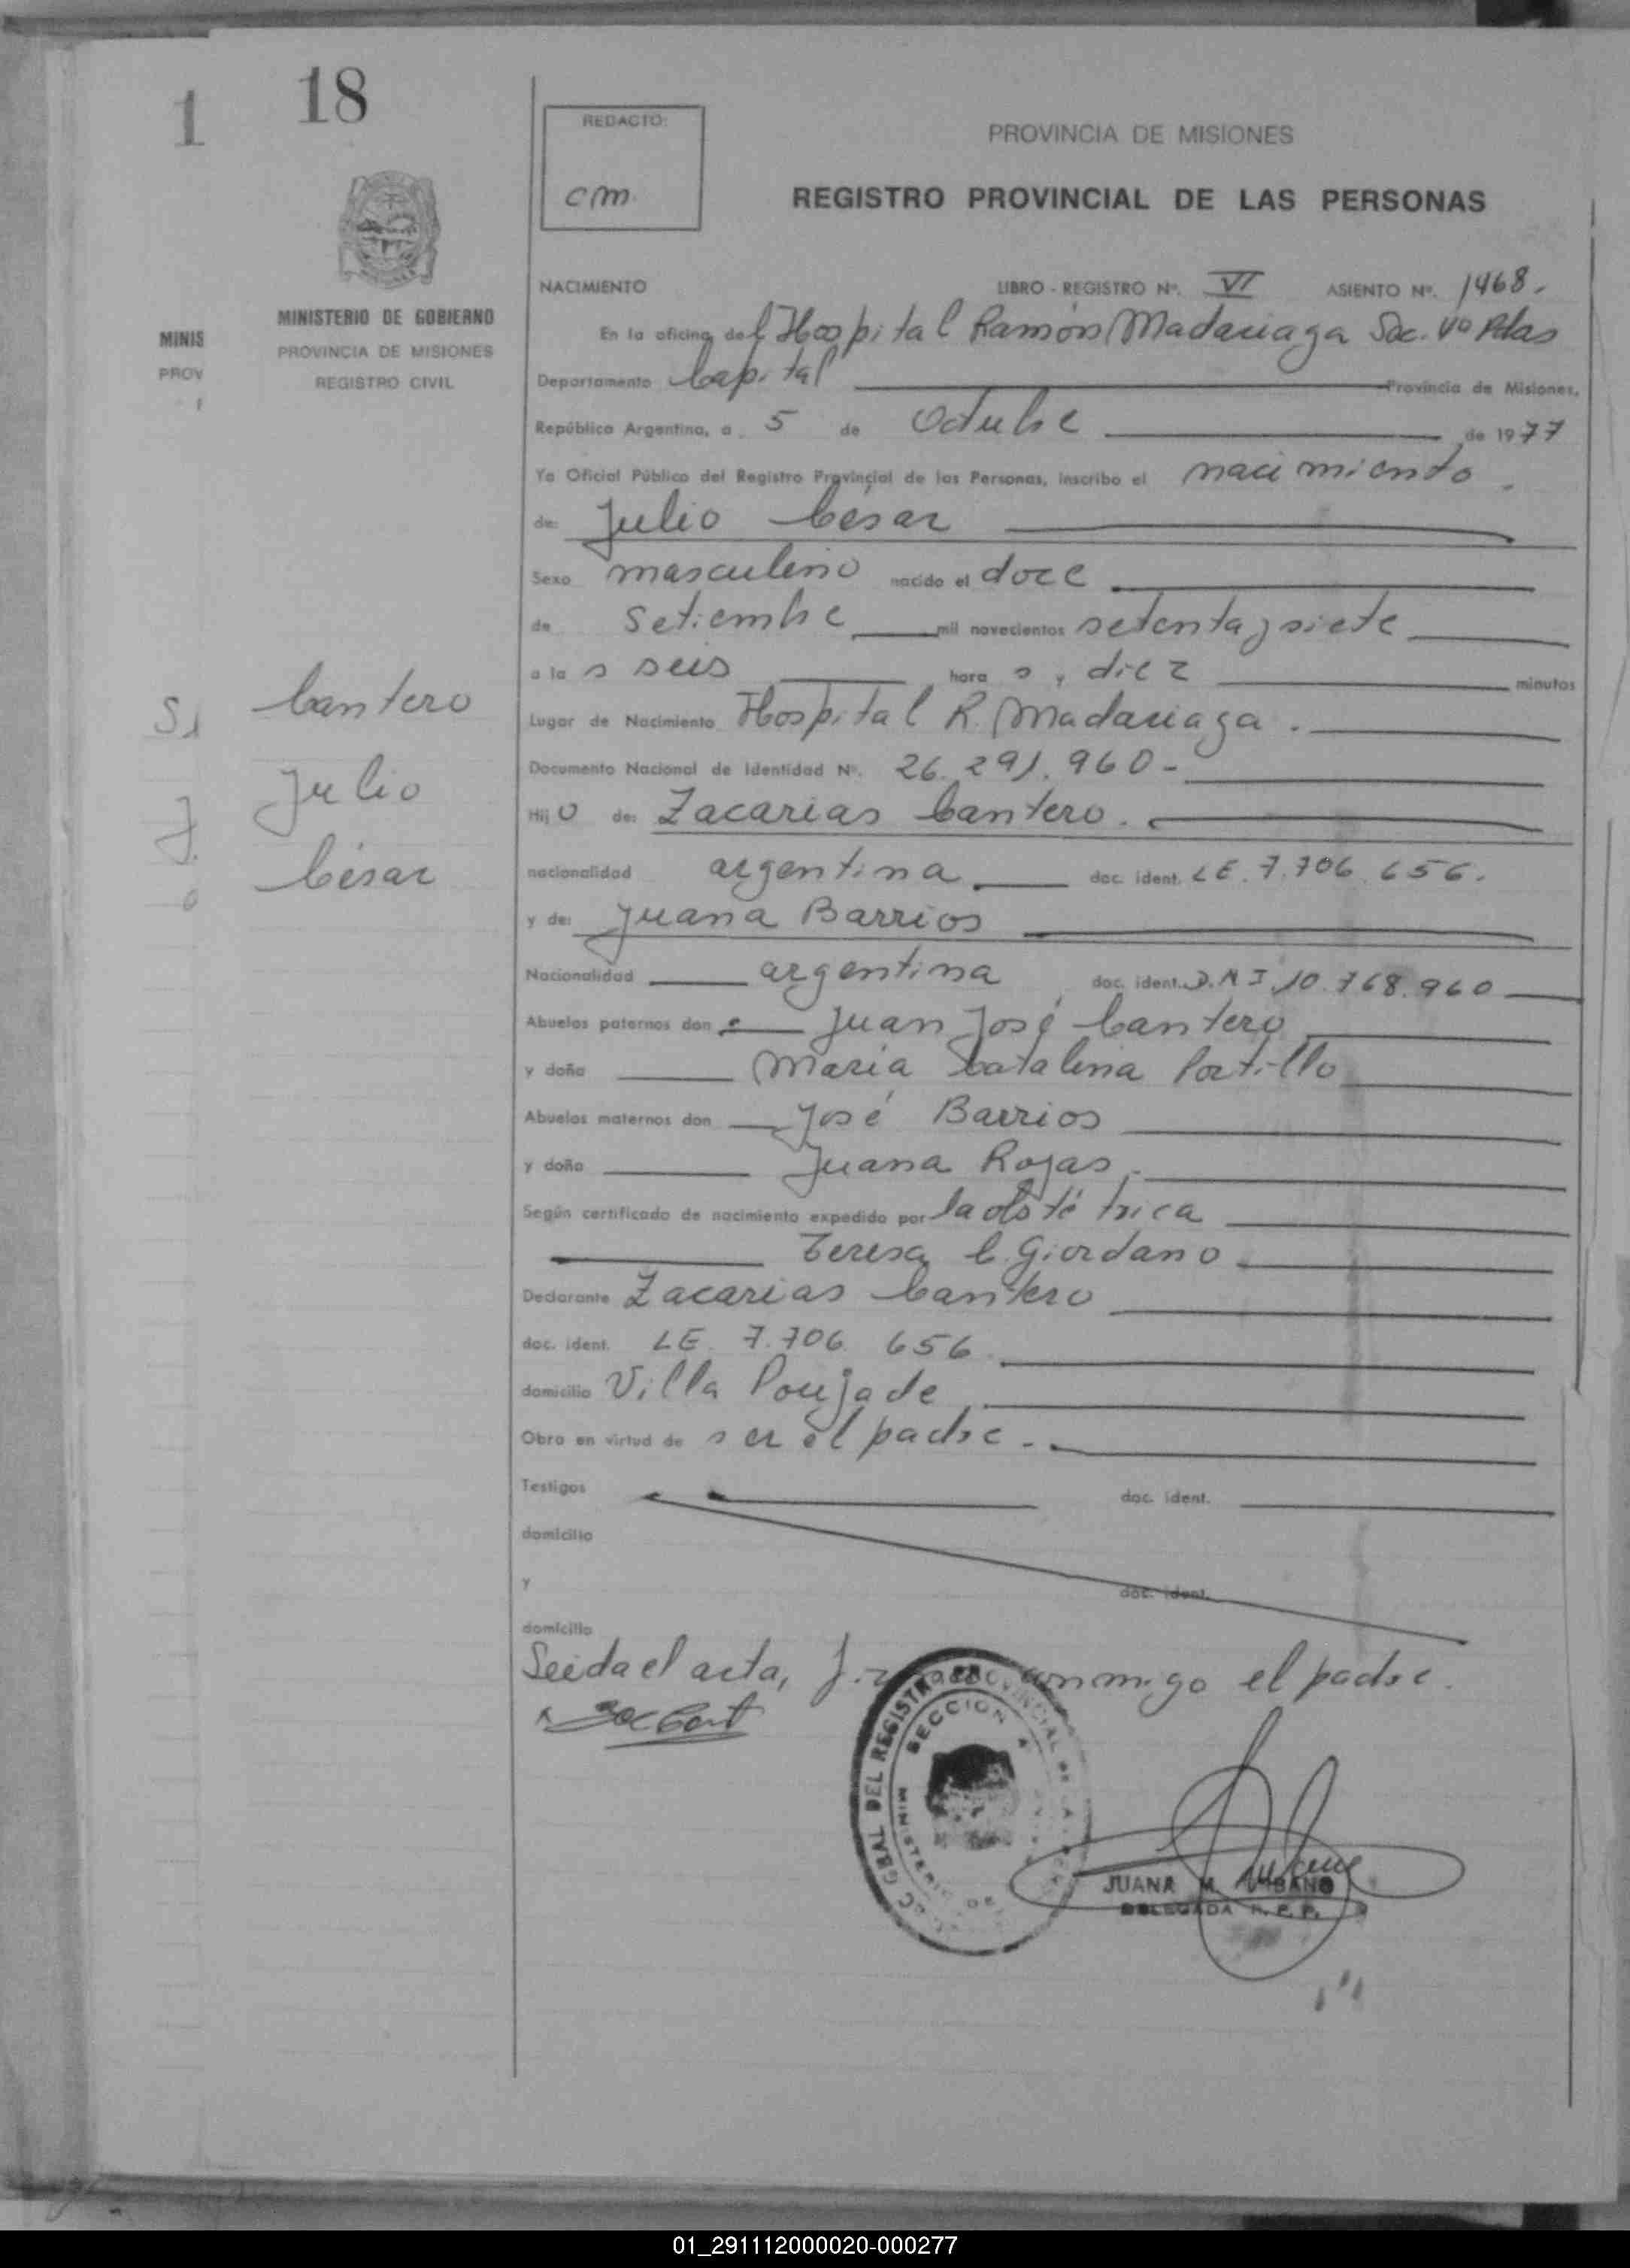 1
18
MINIS
PROV
MINISTERIO DE GOBIERNO
PROVINCIA DE MISIONES
REGISTRO CIVIL
Cantero
Julio
César
REDACTO:
cm.
PROVINCIA DE MISIONES
REGISTRO PROVINCIAL DE LAS PERSONAS
NACIMIENTO LIBRO - REGISTRO Nº. VI ASIENTO Nº. 1468.
En la oficina del Hospital Ramón Madariaga Sec. Vª Pdas
Departamento Capital Provincia de Misiones,
República Argentina, a 5 de Octubre de 1977
Yo Oficial Público del Registro Provincial de las Personas, inscribo el nacimiento.
de: Julio César
Sexo masculino nacido el doce
de Setiembre mil novecientos setenta y siete
a la s seis hora s y diez minutos
Lugar de Nacimiento Hospital R. Madariaga.
Documento Nacional de Identidad Nº. 26.291.960-
Hij o de: Zacarias Cantero.
nacionalidad argentina doc. ident. LE. 7.706.656.
y de: Juana Barrios
Nacionalidad argentina doc. ident. D.N I. 10.768.960
Abuelos paternos don Juan José Cantero
y doña Maria Catalina Portillo
Abuelos maternos don José Barrios
y doña Juana Rojas.
Según certificado de nacimiento expedido por la obstétrica
Teresa C. Giordano
Declarante Zacarias Cantero
doc. ident. LE. 7.706.656.
domicilio Villa Poujade
Obra en virtud de ser el padre.-
Testigos doc. ident.
domicilio
y doc. ident.
domicilio
Leida el acta, firma conmigo el padre.
GRAL DEL REGISTRO PROVINCIAL DE LA
SECCION
MINISTERIO DE
JUANA M.
DELEGADA R. P. P.
01_291112000020-000277